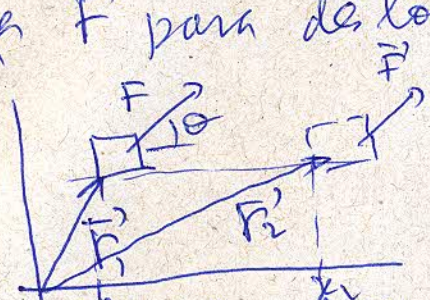 F para des lo
F θ F⃗
r⃗₁ r⃗₂
x₂